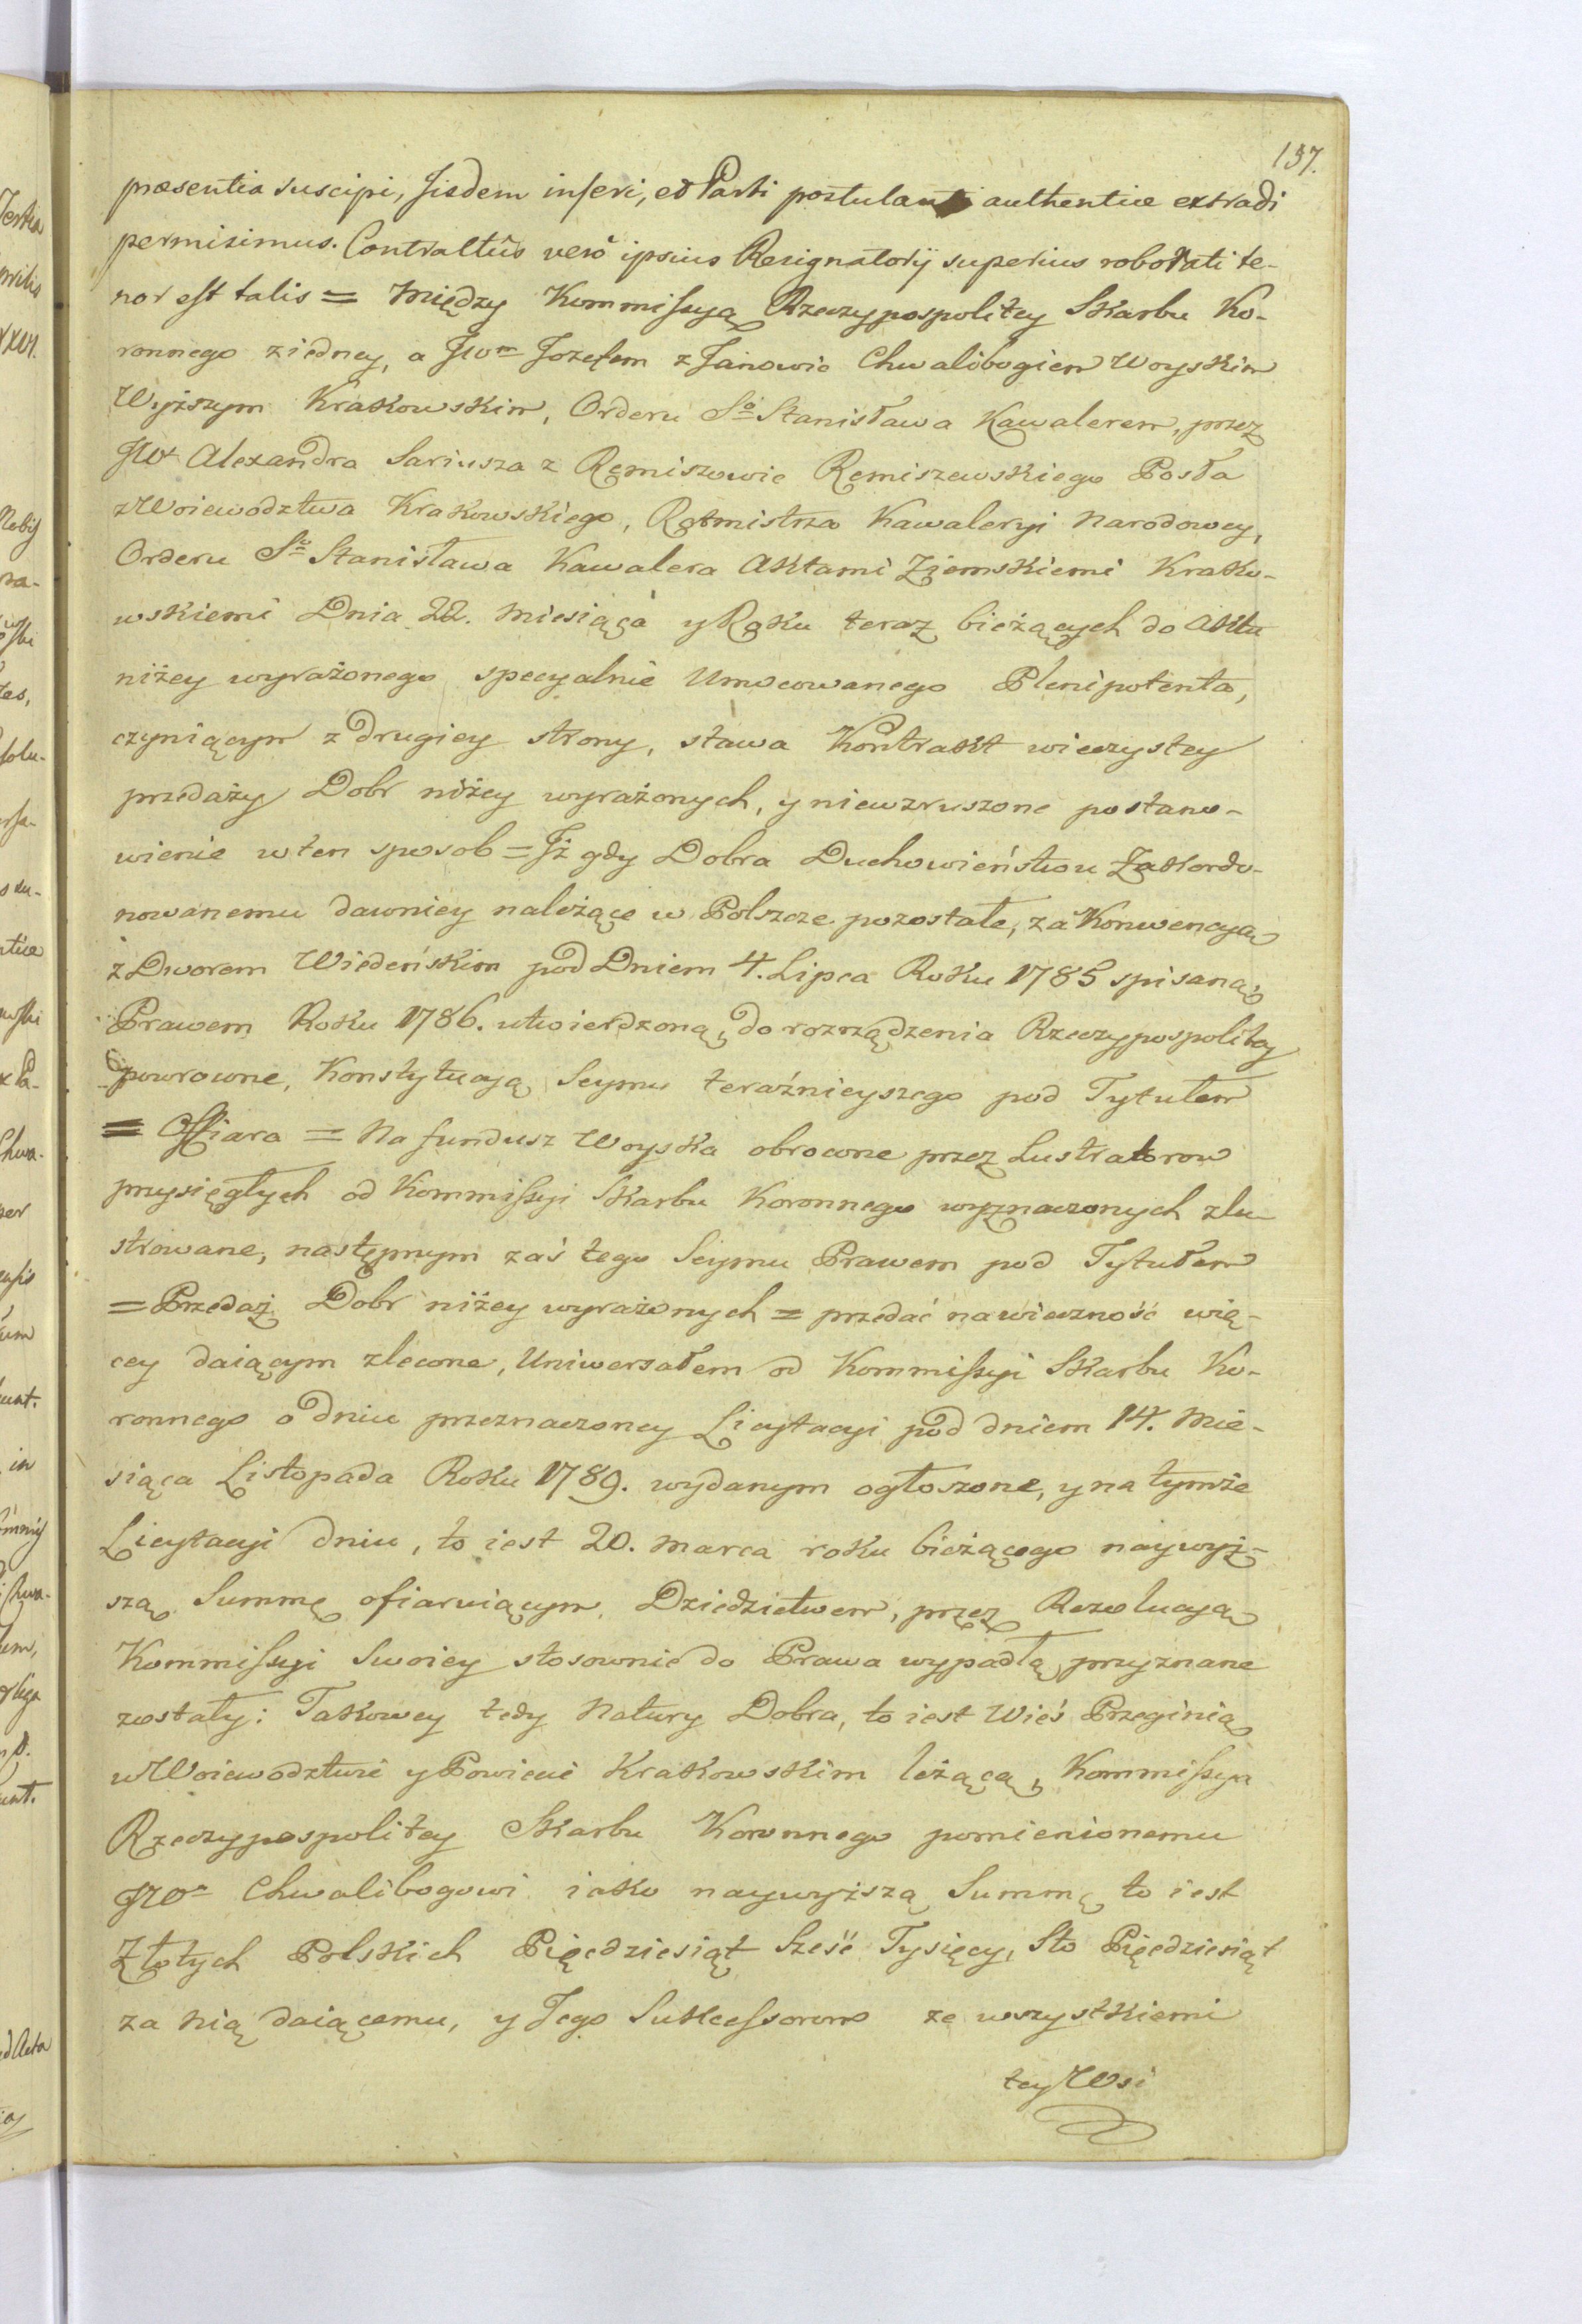 137.
præsentia suscipi, iisdem inseri, et Parti postulanti authentice extradi
permisimus. Contractûs verò ipsius Resignatorij superius roborati te-
nor est talis = Między Kommissyą Rzeczypospolitey Skarbu Ko-
ronnego z iedney, a JWm Jozefem z Janowic Chwalibogiem Woyskim
Wyższym Krakowskim, Orderu So Stanisława Kawalerem, przez
JW Alexandra Sariusza z Remiszowic Remiszewskiego Posła
z Woiewodztwa Krakowskiego, Rotmistrza Kawaleryi Narodowey,
Orderu So Stanisława Kawalera Aktami Ziemskiemi Krako-
wskiemi Dnia 22. Miesiąca y Roku teraz bieżących do Aktu
niżey wyrażonego specyalnie Umocowanego Plenipotenta,
czyniącym z drugiey strony, stawa Kontrakt wieczystey
przedaży Dobr niżey wyrażonych, y niewzruszone postano-
wienie w ten sposob = Jż gdy Dobra Duchowieństwu Zakordo-
nowanemu dawniey należące w Polszcze pozostałe, za Konwencyą
z Dworem Wiedeńskim pod Dniem 4. Lipca Roku 1785 spisaną
Prawem Roku 1786. utwierdzoną, do rozrządzenia Rzeczypospolitey
powrocone, Konstytucyą Seymu teraźnieyszego pod Tytułem
= Offiara = Na fundusz Woyska obrocone przez Lustratorow
przysięgłych od Kommissyi Skarbu Koronnego wyznaczonych zlu-
strowane, następnym zaś tego Seymu Prawem pod Tytułem
= Przedaż Dobr niżey wyrażonych = przedać na wieczność wię-
cey daiącym zlecone, Uniwersałem od Kommissyi Skarbu Ko-
ronnego o dniu przeznaczoney Licytacyi pod dniem 14. Mie-
siąca Listopada Roku 1789. wydanym ogłoszone, y na tymże
Licytacyi dniu, to iest 20. Marca roku bieżącego naywyż-
szą Summę ofiaruiącym, Dziedzictwem, przez Rezolucyą
Kommissyi Swoiey stosownie do Prawa wypadłą przyznane
zostały: Takowey tedy Natury Dobra, to iest Wieś Przeginią
w Woiewodztwie y Powiecie Krakowskim leżącą, Kommissya
Rzeczypospolitey Skarbu Koronnego pomienionemu
JWu Chwalibogowi iako naywyższą Summę to iest
Złotych Polskich Pięćdziesiąt Sześć Tysięcy, Sto Pięćdziesiąt
za nią daiącemu, y Jego Sukcessorom ze wszystkiemi
tey Wsi